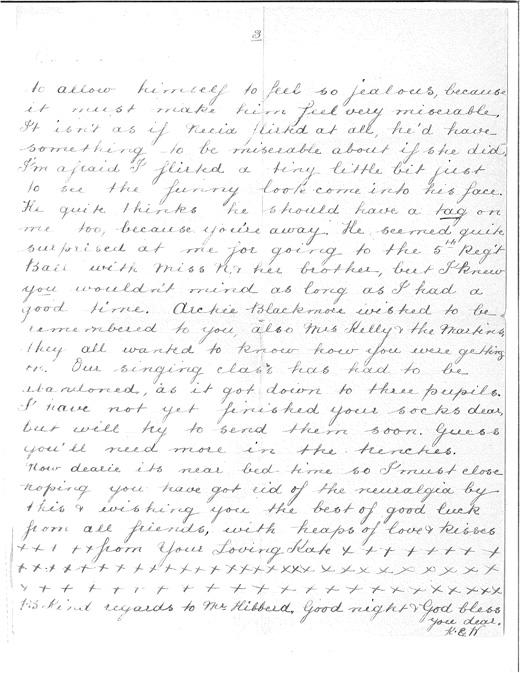 3
to allow himself to feel so jealous, because
it must make him feel very miserable.
It isn't as if flirted at all, he'd have
something to be miserable about if she did,
I'm afraid I flirted a tiny little bit just
to see the funny look come into his face.
He quite thinks he should have a tag on
me too, because you're away. He seemed quite
surprised at me for going to the 5th Reg't
Ball with Miss R. & her brother, but I knew
you wouldn't mind as long as I had a
good time. Archie Blackmore wished to be
remembered to you, also Mrs Kelly & the Martins,
they all wanted to know how you were getting
on. Our singing class has had to be
abandoned, as it got down to three pupils.
I have not yet finished your socks dear,
but will try to send them soon. Guess
you'll need more in the trenches.
Now dearie its near bed-time so I must close
hoping you have got rid of the neuralgia by
this & wishing you the best of good luck
from all friends, with heaps of love & kisses
+ + + + + from Your Loving Kate x + + + + + + +
+ + + + + + + + + + + + + + + + x x x x x x x x x x x
x + + + + + + + + + + + + + + + + x x x x x x
P.S. Kind regards to Mr Hibberd. Good night & God bless
you dear.
K.E.W